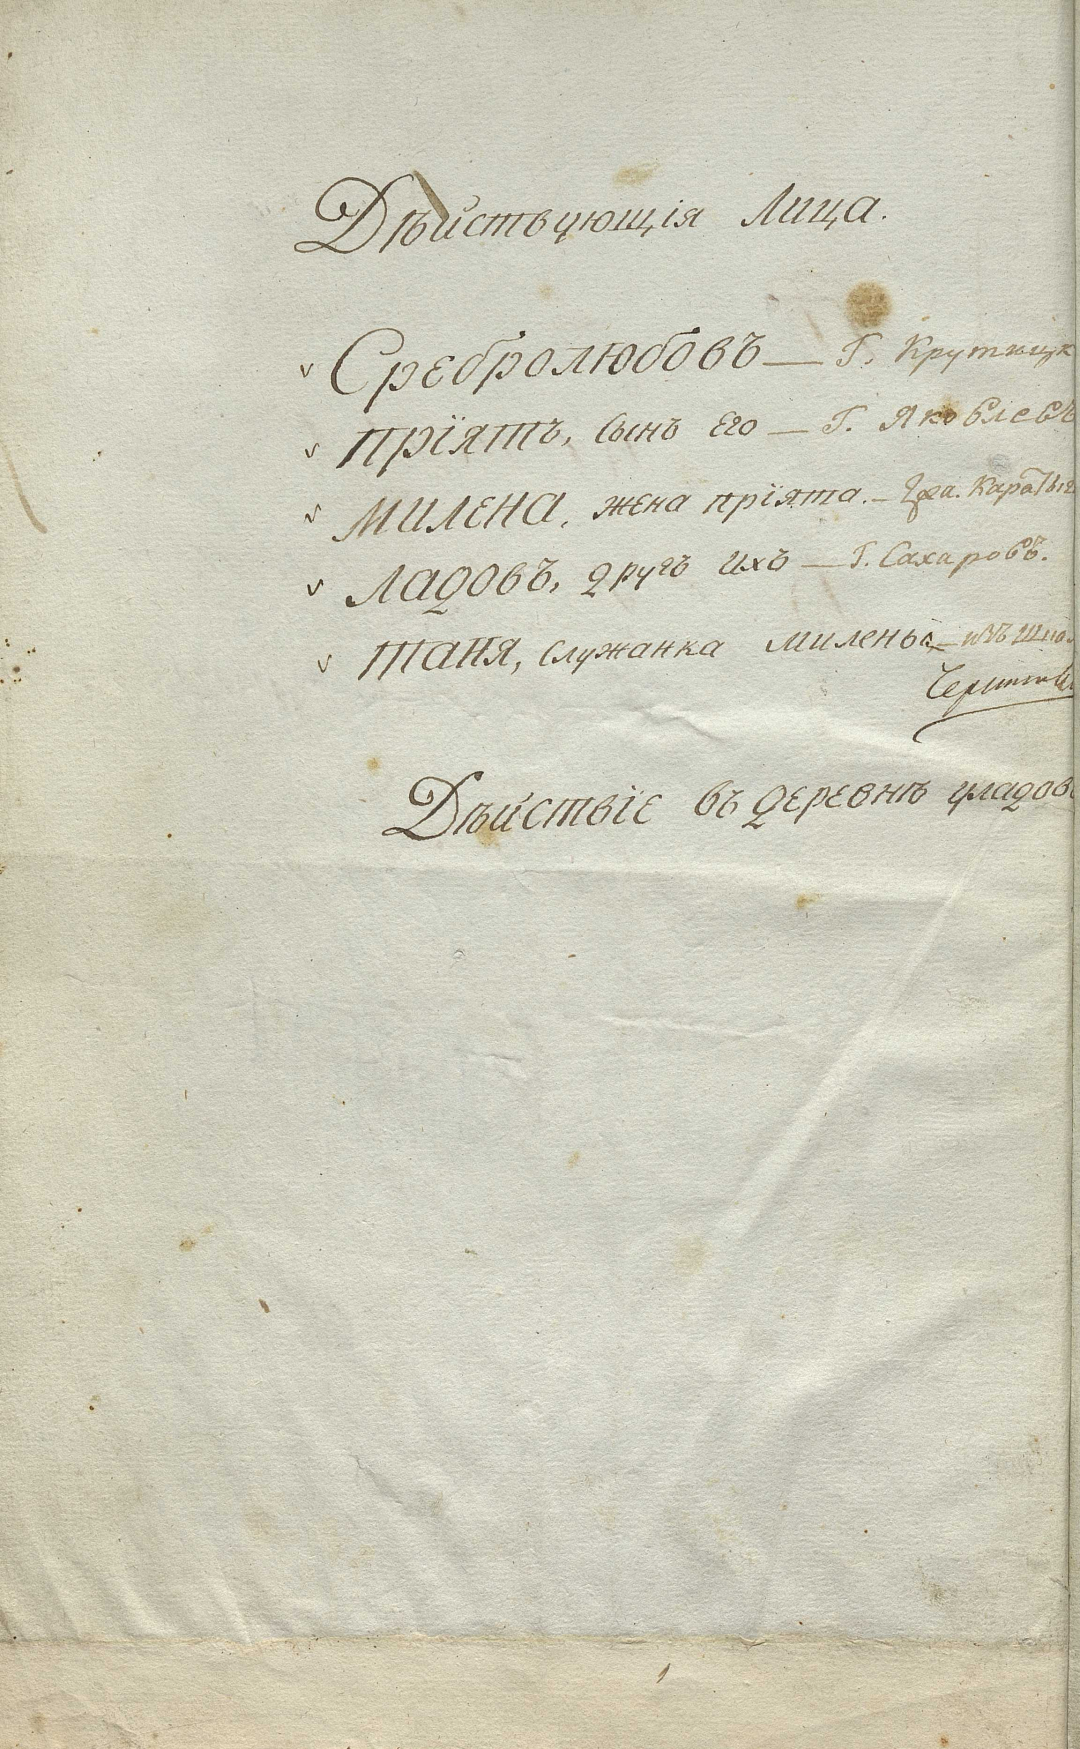 Дѣйствующія Лица.
Сребролюбовъ — Г. Крутицк
Пріятъ, сынъ Его — Г. Яковлевъ
Милена, жена пріята. — Гжа. Караты
Ладовъ, другъ ихъ — Г. Сахаровъ.
Таня, служанка милены — изъ Шко
Дѣйствіе въ деревнѣ уладов